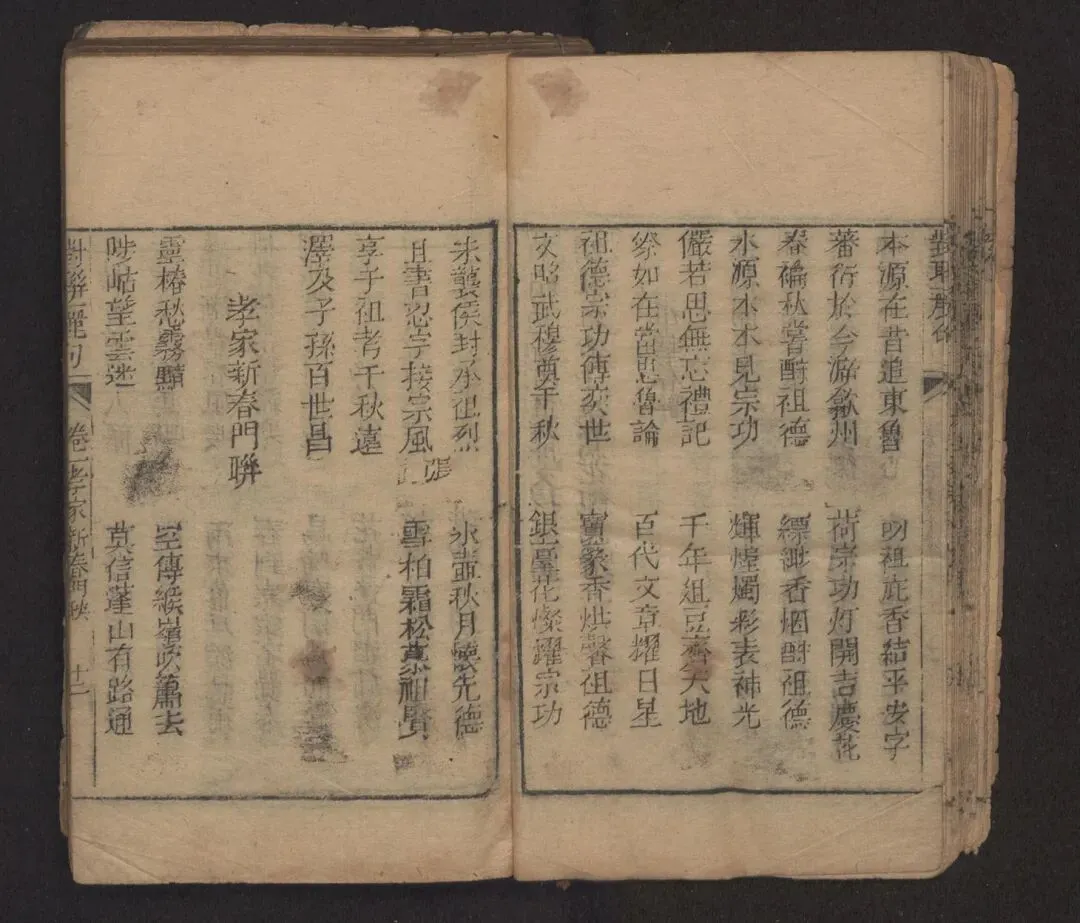 本源在昔追東魯　明祖庇香結平安字
蕃衍於今溯歙州　荷宗功灯開吉慶花
春禴秋嘗酹祖德　縹緲香烟酹祖德
水源木本見宗功　輝煌燭彩表神光
儼若思無忘禮記　千年俎豆齊天地
祭如在當思魯論　百代文章耀日星
祖德宗功傳奕世　寶篆香烘馨祖德
文昭武穆奠千秋　銀臺花燦躍宗功
朱襲侯封承祖烈　氷壺秋月懷先德
百書忍字接宗風　張　雪柏霜松慕祖賢
享于祖考千秋遠
澤及子孫百世昌
孝家新春門聯
靈椿秋愁霧黯　空傳緱嶺吹簫去
陟岵望雲迷　莫信蓬山有路通
對聯麗句　卷一　孝家新春門　十二